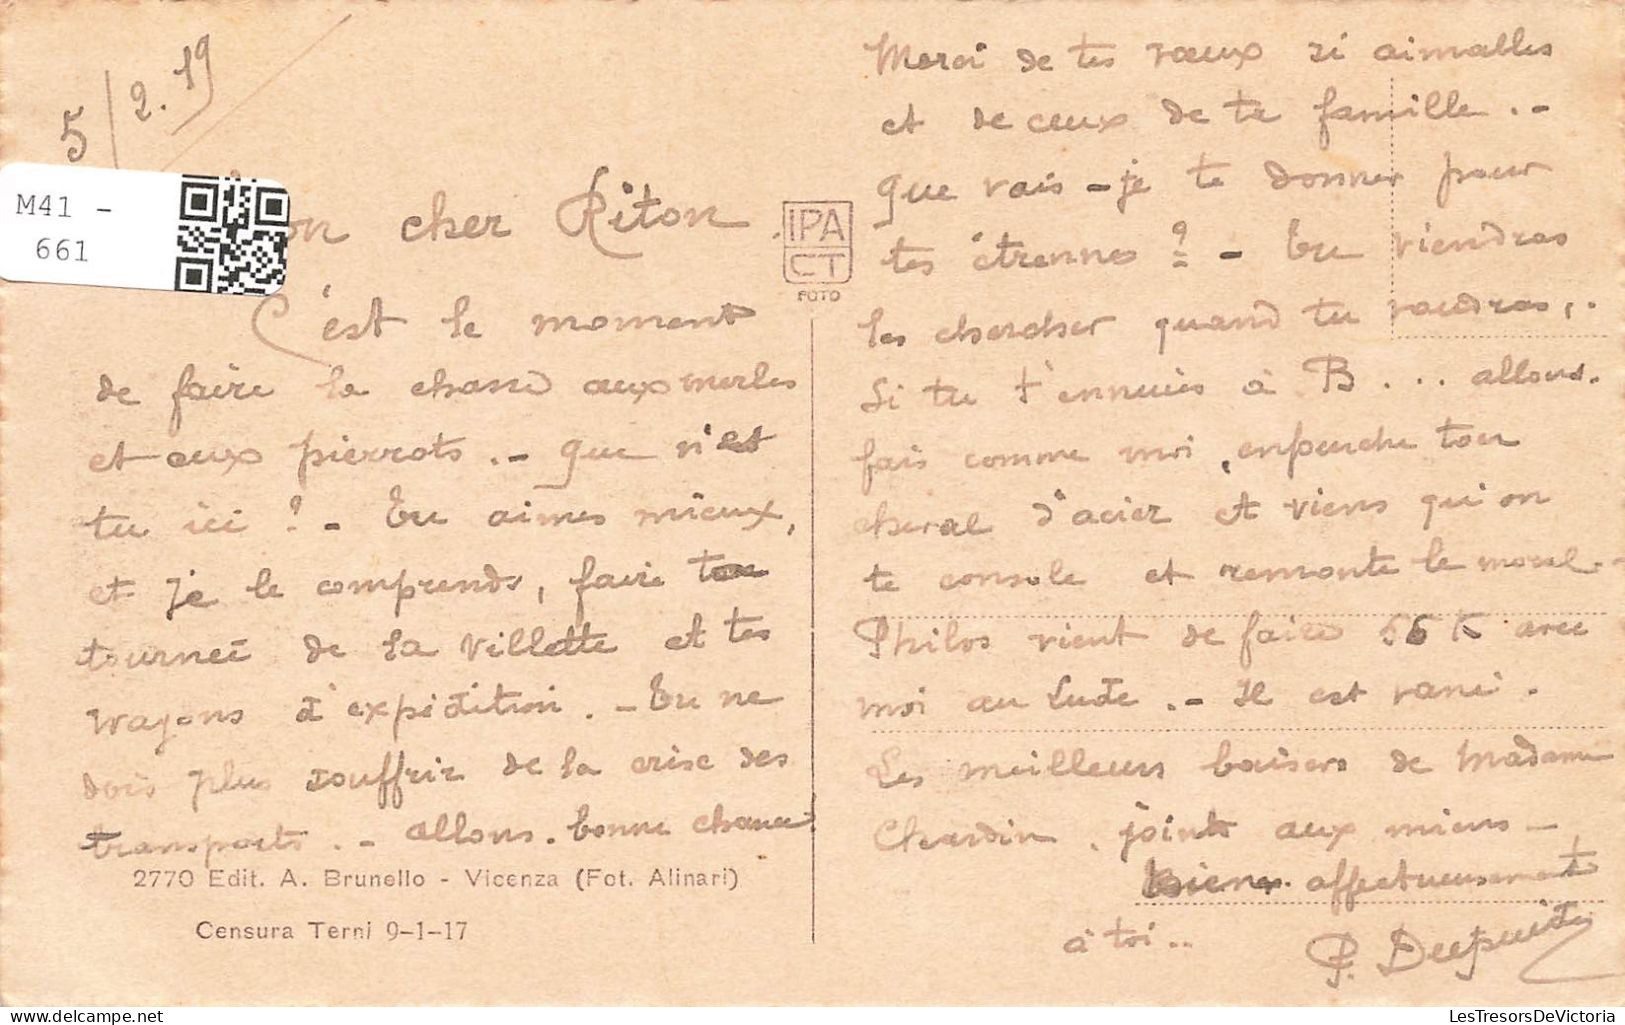 5/2.19
M41 -
661
cher Riton
C'est le moment
de faire la chasse aux merles
et aux pierrots. - Que n'es
tu ici ? - Tu aimes mieux,
et je le comprends, faire ton
tournée de la Villette et tes
wagons d'expédition. - Tu ne
dois plus souffrir de la crise des
transports. - Allons. bonne chance!
2770 Edit. A. Brunello - Vicenza (Fot. Alinari)
Censura Terni 9-1-17
IPA
CT
FOTO
Merci de tes voeux si aimables
et de ceux de ta famille. -
Que vais-je te donner pour
tes étrennes ? - Tu viendras
les chercher quand tu voudras..
Si tu t'ennuies à B... allons.
fais comme moi, enfourche ton
cheval d'acier et viens qu'on
te console et remonte le moral. -
Philos vient de faire 56 K avec
moi au Lude. - Il est ravi.
Les meilleurs baisers de Madame
Chardin, joints aux miens -
Bien affectueusement
à toi..
P.